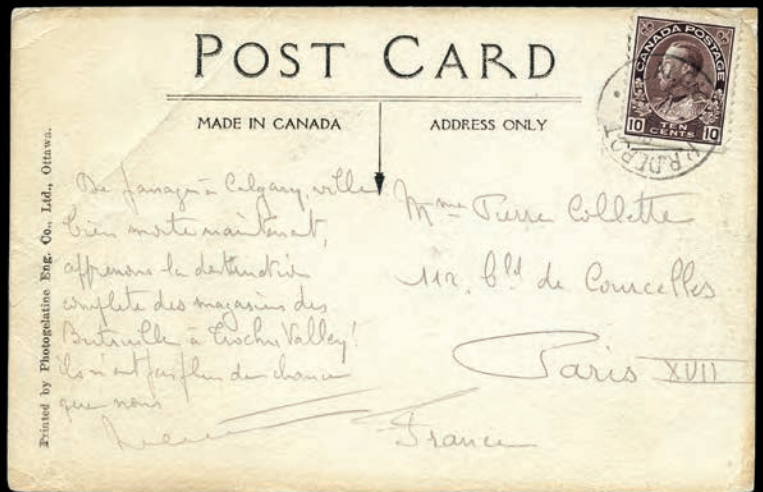 POST CARD
MADE IN CANADA
ADDRESS ONLY
CANADA POSTAGE
10 TEN CENTS 10
R. DEPOT
Printed by Photogelatine Eng. Co., Ltd., Ottawa.
De passage à Calgary, ville
bien morte maintenant,
apprenons la destruction
complète des magasins des
à Trochu Valley!
ils n'ont pas plus de chance
que nous
Mme Pierre Collette
112, Bld de Courcelles
Paris XVII
France